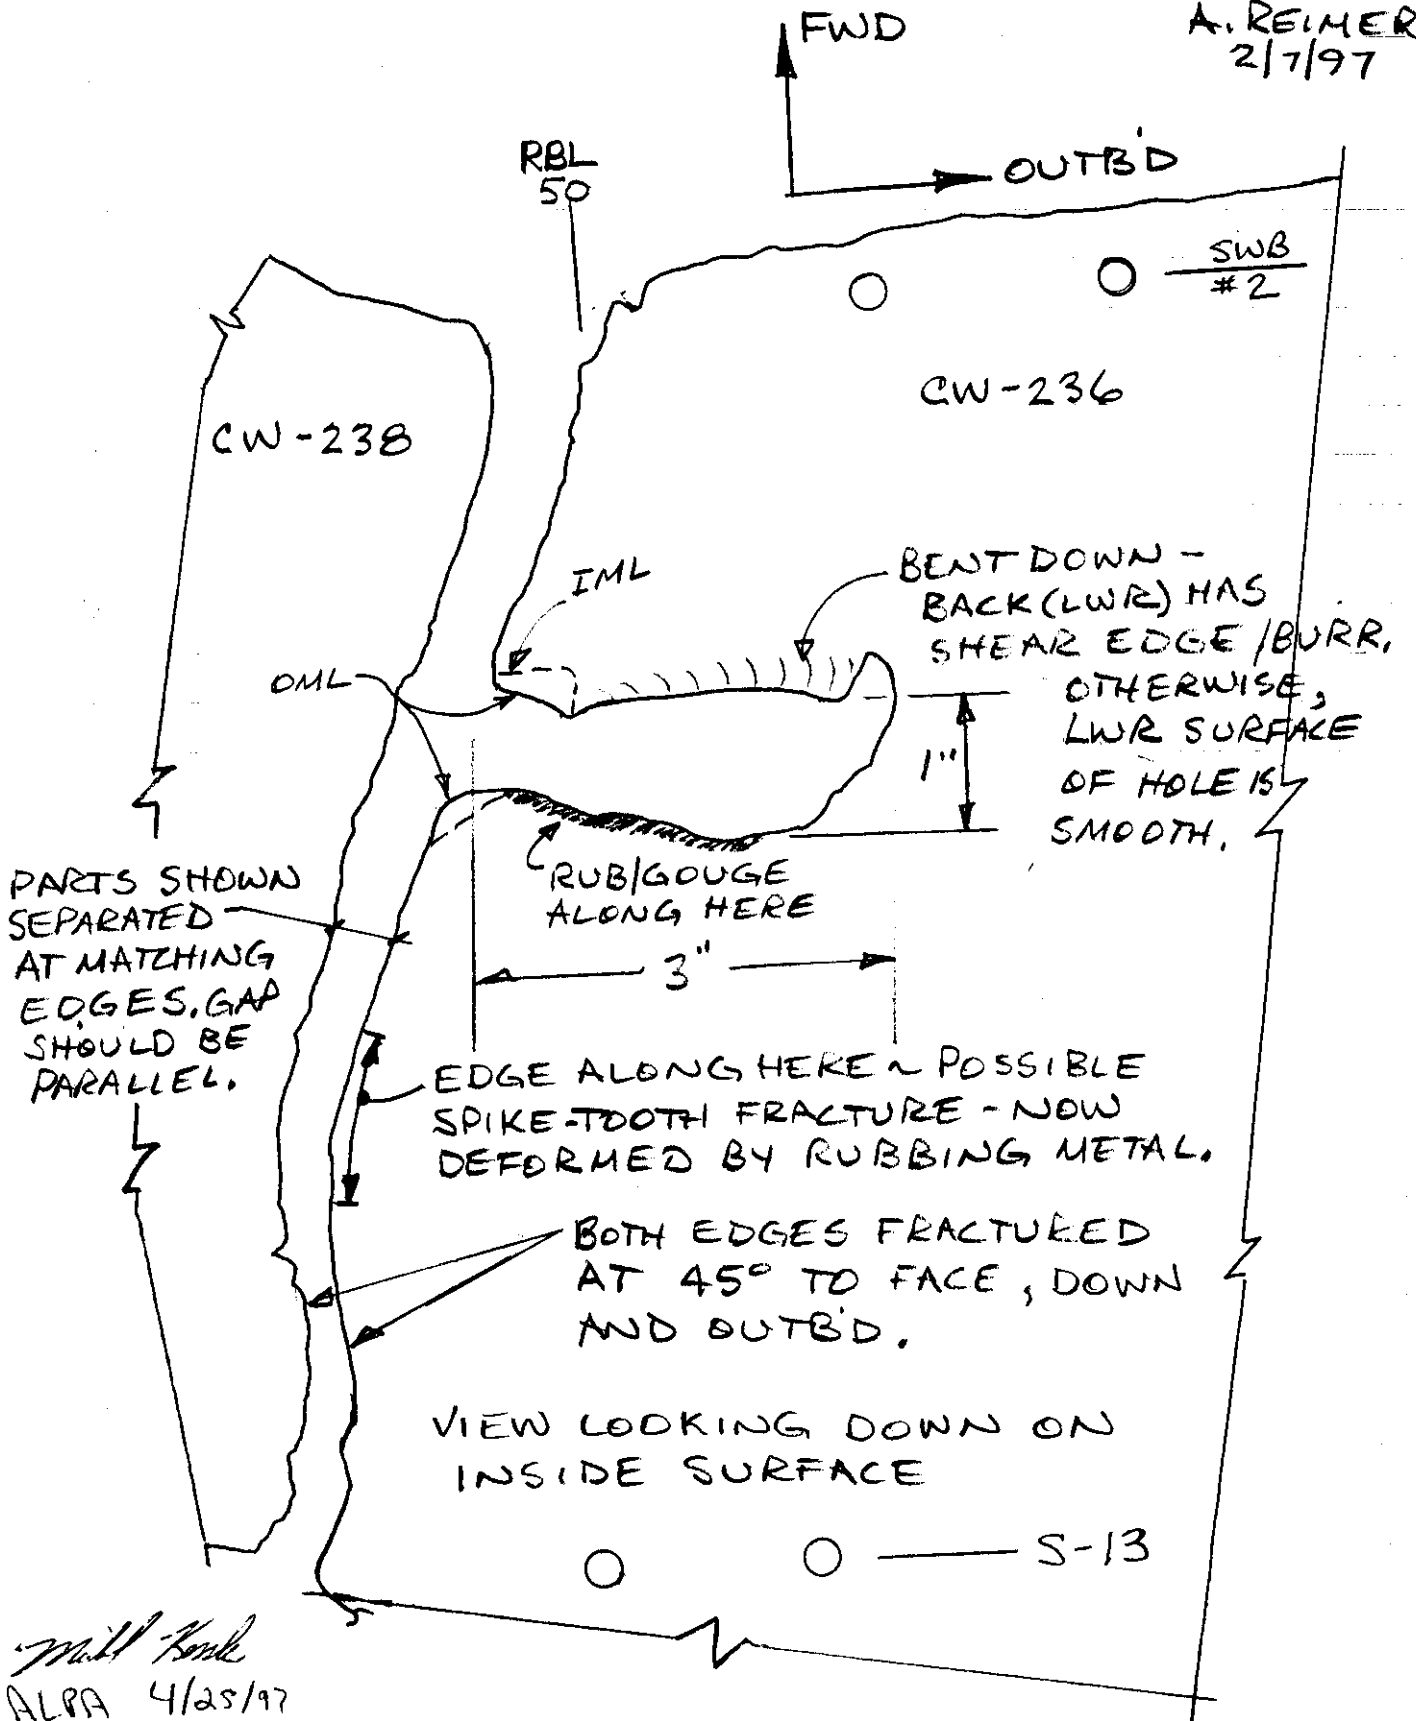 FWD
A. REIMER
2/7/97
OUTB'D
RBL
50
SWB
#2
CW-236
CW-238
IML
OML
BENT DOWN -
BACK (LWR) HAS
SHEAR EDGE/BURR.
OTHERWISE,
LWR SURFACE
OF HOLE IS
SMOOTH.
1"
RUB/GOUGE
ALONG HERE
3"
PARTS SHOWN
SEPARATED
AT MATCHING
EDGES. GAP
SHOULD BE
PARALLEL.
EDGE ALONG HERE ~ POSSIBLE
SPIKE-TOOTH FRACTURE - NOW
DEFORMED BY RUBBING METAL.
BOTH EDGES FRACTURED
AT 45° TO FACE, DOWN
AND OUTB'D.
VIEW LOOKING DOWN ON
INSIDE SURFACE
S-13
ALPA 4/25/97